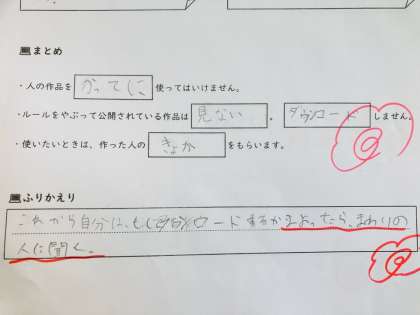 まとめ
・人の作品を かってに 使ってはいけません。
・ルールをやぶって公開されている作品は 見ない 。 ダウンロード しません。
・使いたいときは、作った人の きょか をもらいます。
ふりかえり
これから自分に、もしダウンロードするかまよったら、まわりの
人に聞く。